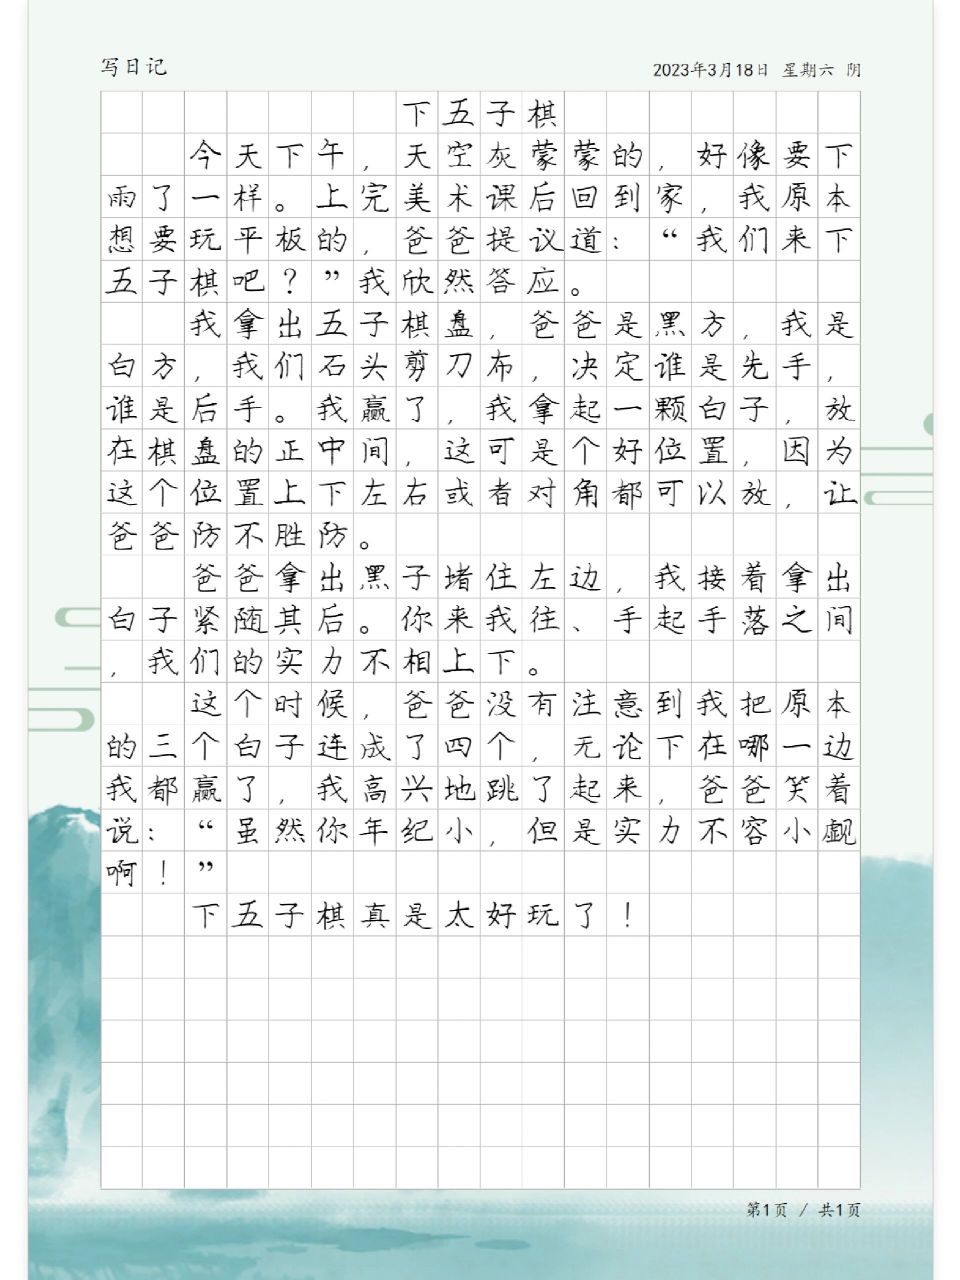 写日记
2023年3月18日 星期六 阴
下五子棋
今天下午，天空灰蒙蒙的，好像要下
雨了一样。上完美术课后回到家，我原本
想要玩平板的，爸爸提议道：“我们来下
五子棋吧？”我欣然答应。
我拿出五子棋盘，爸爸是黑方，我是
白方，我们石头剪刀布，决定谁是先手，
谁是后手。我赢了，我拿起一颗白子，放
在棋盘的正中间，这可是个好位置，因为
这个位置上下左右或者对角都可以放，让
爸爸防不胜防。
爸爸拿出黑子堵住左边，我接着拿出
白子紧随其后。你来我往、手起手落之间
，我们的实力不相上下。
这个时候，爸爸没有注意到我把原本
的三个白子连成了四个，无论下在哪一边
我都赢了，我高兴地跳了起来，爸爸笑着
说：“虽然你年纪小，但是实力不容小觑
啊！”
下五子棋真是太好玩了！
第1页 / 共1页